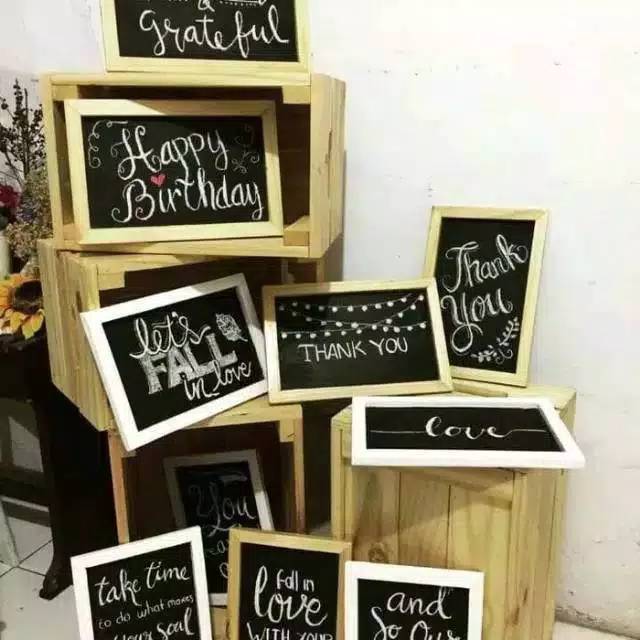 &
grateful
Happy
Birthday
let's
FALL
in love
THANK YOU
Thank
You
love
You
take time
to do what makes
your soul
fall in
love
WITH YOUR
and
so our